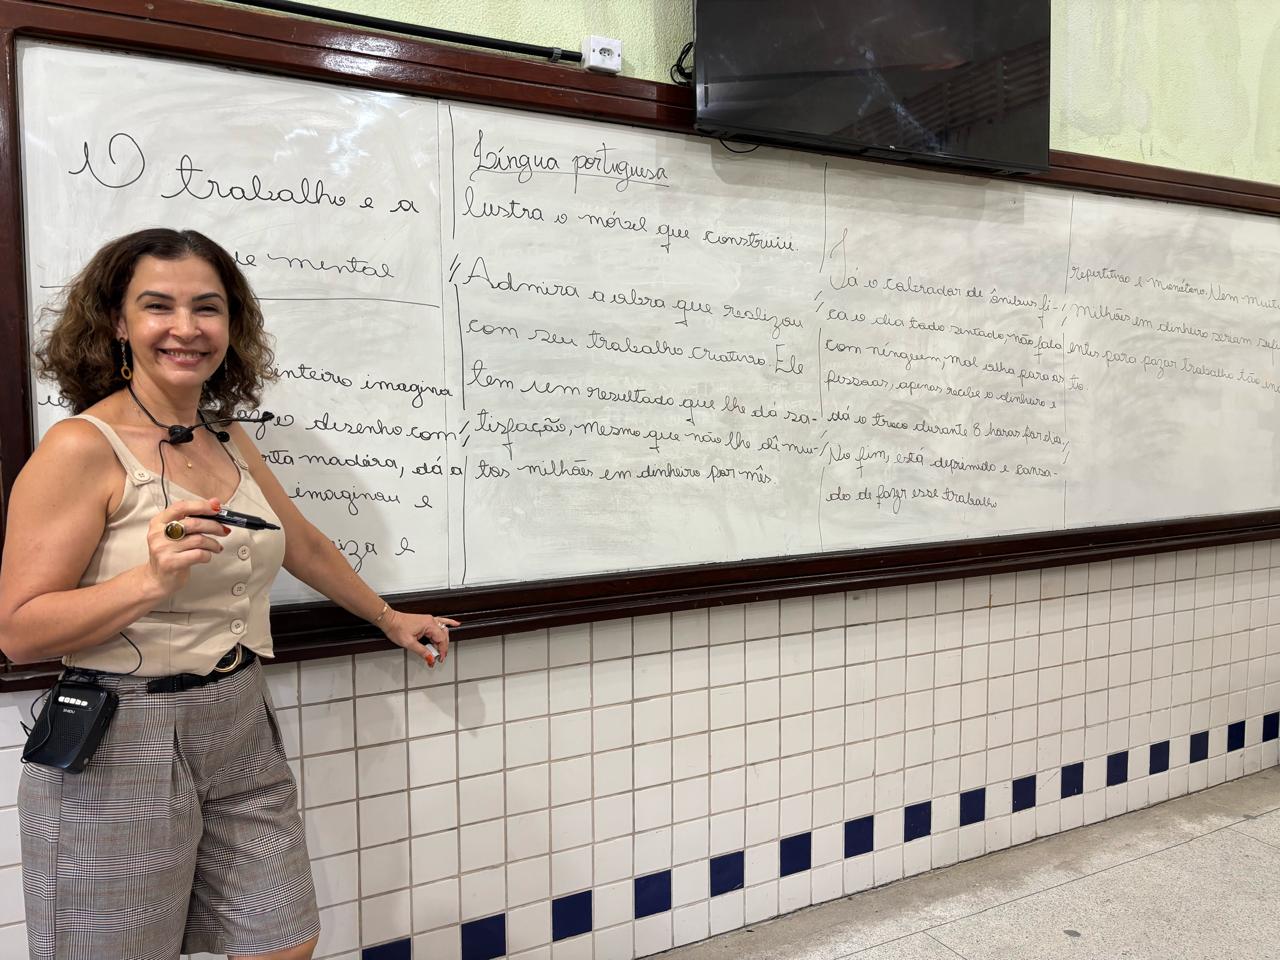 O trabalho e a
de mental
inteiro imagina
faz o desenho com
madeira, dá a
imaginou e
e
Língua portuguesa
lustra o móvel que construiu.
Admira a obra que realizou
com seu trabalho criativo. Ele
tem um resultado que lhe dá sa-
tisfação, mesmo que não lhe dê mui-
tos milhões em dinheiro por mês.
Já o cobrador de ônibus fi-
ca o dia todo sentado, não fala
com ninguém, mal olha para as
pessoas, apenas recebe o dinheiro e
dá o troco durante 8 horas por dia.
No fim, está deprimido e cansa-
do de fazer esse trabalho
repetitivo e monótono. Nem muitos
milhões em dinheiro seriam sufi
entes para pagar trabalho tão
to.